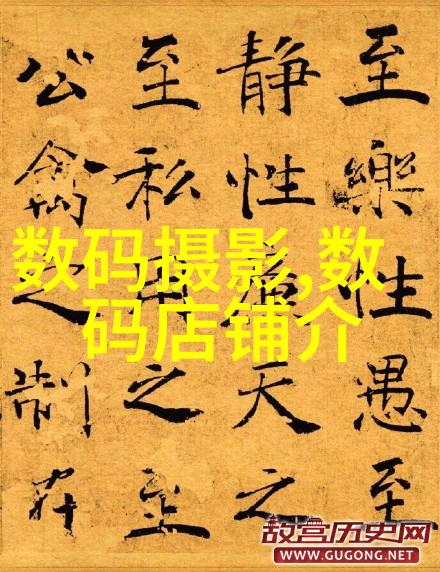 至樂性愚至
静性天之
至私用之至
公禽之制在
数码摄影,数
码店铺介
故宫历史网
WWW.GUGONG.NET